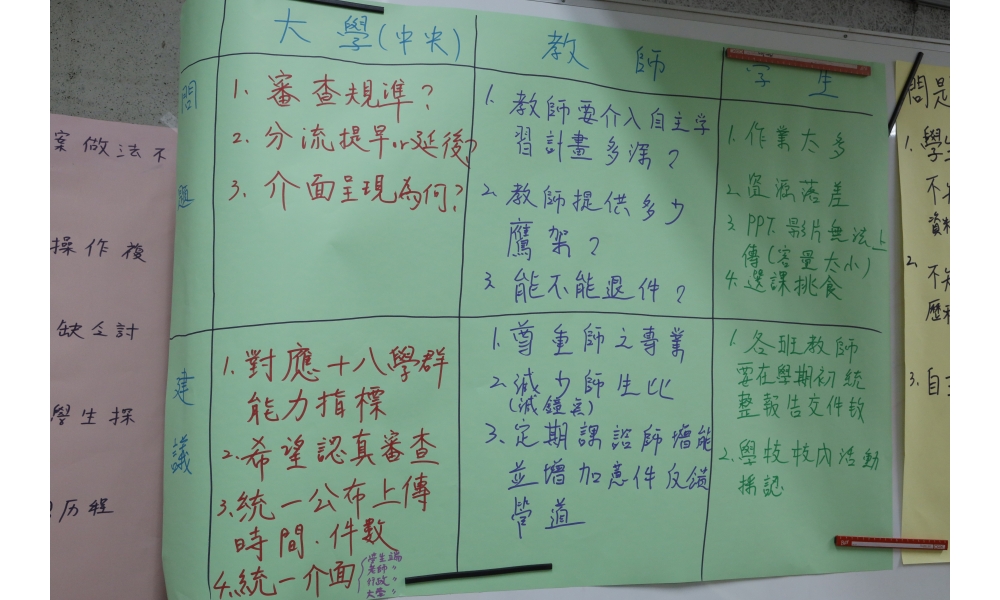 大學(中央)
教師
學生
問題
1. 審查規準?
2. 分流提早or延後?
3. 介面呈現為何?
1. 教師要介入自主学
習計畫多深?
2. 教師提供多少
鷹架?
3. 能不能退件?
1. 作業太多
2. 資源落差
3. PPT.影片無法上
傳(容量太小)
4. 選課挑食
建議
1. 對應十八學群
能力指標
2. 希望認真審查
3. 統一公布上傳
時間.件數
4. 統一介面
學生端
老師〃
行政〃
大學〃
1. 尊重師之專業
2. 減少師生比
3. 定期課諮師增能
並增加意件反饋
管道
1. 各班教師
要在學期初統
整報告文件數
2. 學校校內活動
採認
案做法不
操作複
缺乏計
學生探
历程
問是
1. 學生
不
資料
2. 不
歷程
3. 自主